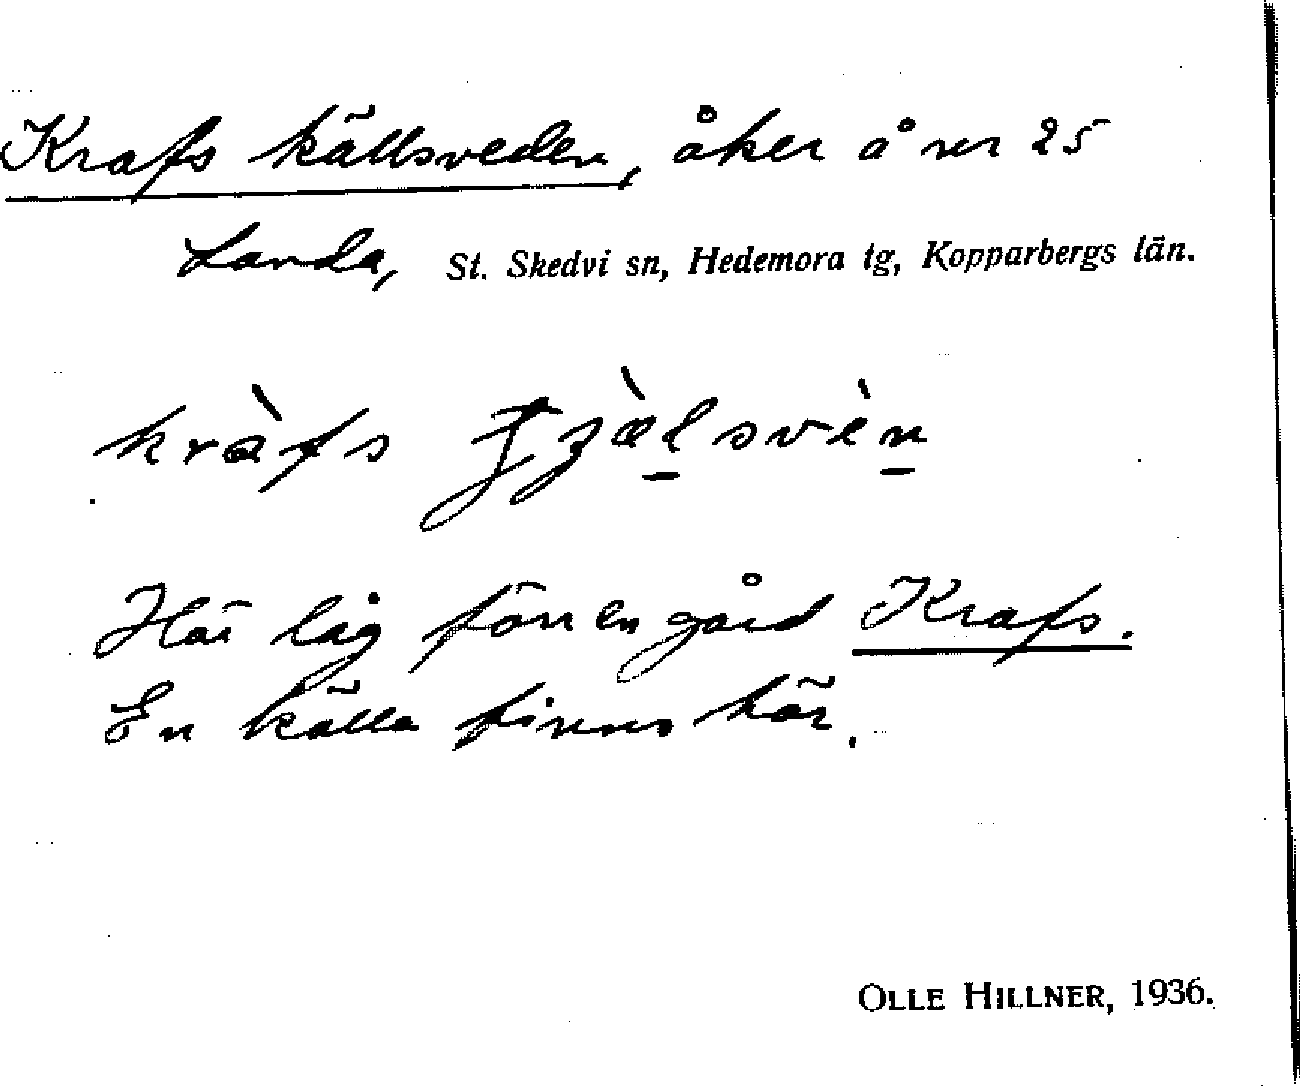 Krafs källsveden, åker å nr 25
Landa, St. Skedvi sn, Hedemora tg, Kopparbergs län.
kràfs
Här låg förr en gård Krafs.
En källa finns här.
OLLE HILLNER, 1936.